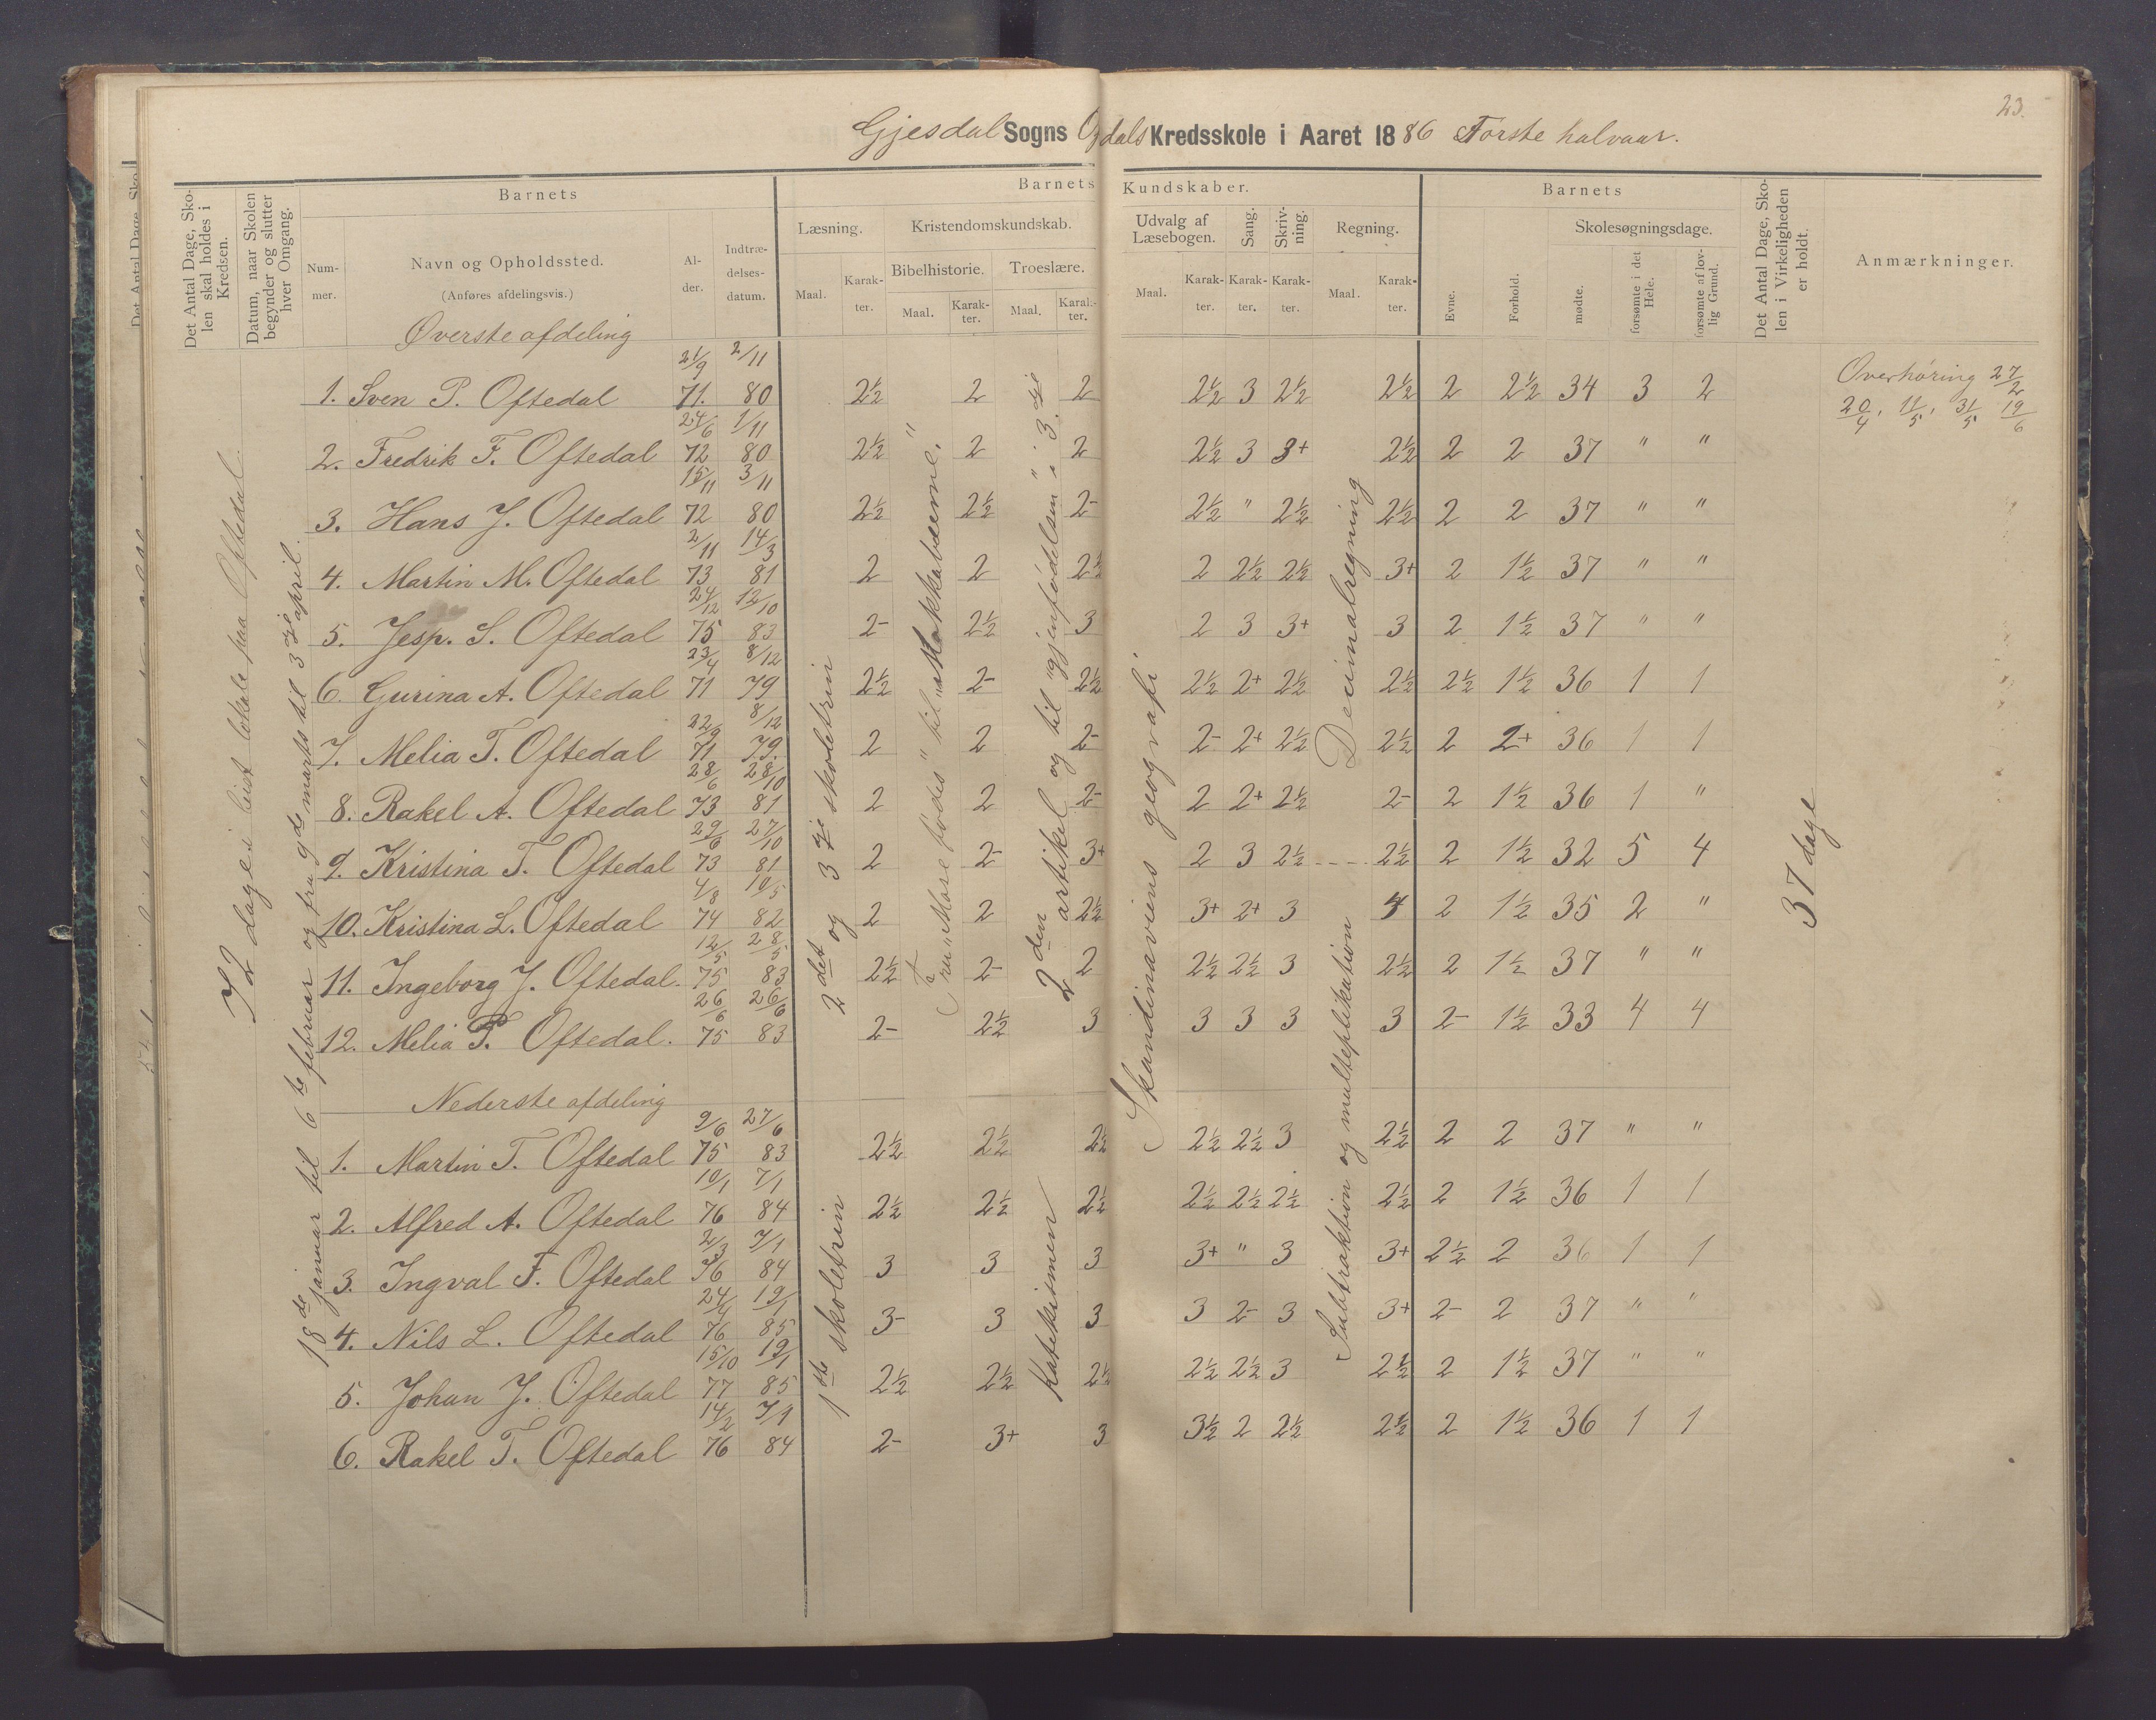 23.
Gjesdal Sogns Oydals Kredsskole i Aaret 1886 Første halvaar.
Det Antal Dage, Skolen skal holdes i Kredsen.
Datum, naar Skolen begynder og slutter hver Omgang.
Barnets
Nummer.
Navn og Opholdssted.
(Anføres afdelingsvis.)
Alder.
Indtrædelsesdatum.
Barnets Kundskaber.
Læsning.
Maal.
Karakter.
Kristendomskundskab.
Bibelhistorie.
Maal.
Karakter.
Troeslære.
Maal.
Karakter.
Udvalg af Læsebogen.
Maal.
Karakter.
Sang.
Karakter.
Skrivning.
Karakter.
Regning.
Maal.
Karakter.
Barnets
Evne.
Forhold.
Skolesøgningsdage.
mødte.
forsømte i det Hele.
forsømte af lovlig Grund.
Det Antal Dage, Skolen i Virkeligheden er holdt.
Anmærkninger.
Øverste afdeling
1. Sven P. Oftedal 21/9 71. 2/11 80 2½ 2 2 2½ 3 2½ 2½ 2 2½ 34 3 2
2. Fredrik F. Oftedal 24/6 72 1/11 80 2½ 2 2 2½ 3 3+ 2½ 2 2 37 " "
3. Hans J. Oftedal 15/11 72 3/11 80 2½ 2½ 2- 2½ " 2½ 2½ 2 2 37 " "
4. Martin M. Oftedal 2/11 73 14/3 81 2 2 2½ 2 2½ 2½ 3+ 2 1½ 37 " "
5. Jesp. S. Oftedal 24/12 75 12/10 83 2- 2½ 3 2 3 3+ 3 2 1½ 37 " "
6. Gurina A. Oftedal 23/4 71 8/12 79 2½ 2- 2½ 2½ 2+ 2½ 2½ 2½ 1½ 36 1 1
7. Melia T. Oftedal 22/9 71 8/12 79. 2 2 2- 2- 2+ 2½ 2½ 2 2+ 36 1 1
8. Rakel A. Oftedal 28/6 73 28/10 81 2 2 2- 2 2+ 2½ 2- 2 1½ 36 1 "
9. Kristina T. Oftedal 29/6 73 27/10 81 2 2- 3+ 2 3 2½ 2½ 2 1½ 32 5 4
10. Kristina L. Oftedal 4/8 74 10/5 82 2 2 2½ 3+ 2+ 3 4 2 1½ 35 2 "
11. Ingeborg J. Oftedal. 12/5 75 28/5 83 2½ 2- 2 2½ 2½ 3 2½ 2 1½ 37 " "
12. Melia P. Oftedal. 26/6 75 26/6 83 2- 2½ 3 3 3 3 3 2- 1½ 33 4 4
Nederste afdeling
1. Martin T. Oftedal 9/6 75 27/6 83 2½ 2½ 2½ 2½ 2½ 3 2½ 2 2 37 " "
2. Alfred A. Oftedal 10/1 76 7/1 84 2½ 2½ 2½ 2½ 2½ 2½ 2½ 2 1½ 36 1 1
3. Ingval F. Oftedal 2/3 76 7/1 84 3 3 3 3+ " 3 3+ 2½ 2 36 1 1
4. Nils L. Oftedal 24/4 76 19/1 85 3- 3 3 3 2- 3 3+ 2- 2 37 " "
5. Johan J. Oftedal 15/10 77 19/1 85 2½ 2½ 2½ 2½ 2½ 3 2½ 2 1½ 37 " "
6. Rakel T. Oftedal 14/2 76 7/1 84 2- 3+ 3 3½ 2 2½ 2½ 2 1½ 36 1 1
72 dage i leiet lokale paa Oftedal.
18de januar til 6te februar og fra 9de marts til 3dje april.
2det og 3dje skoletrin
1ste skoletrin
Fra "Mose fødes" til "Makkabæerne."
2den artikel og til "gjenfødelsen" i 3dje
Katekismen
Skandinaviens geografi
Decimalregning
Subtraktion og multeplikation
37 dage
Overhøring 27/2
20/4, 11/5, 31/5 19/6